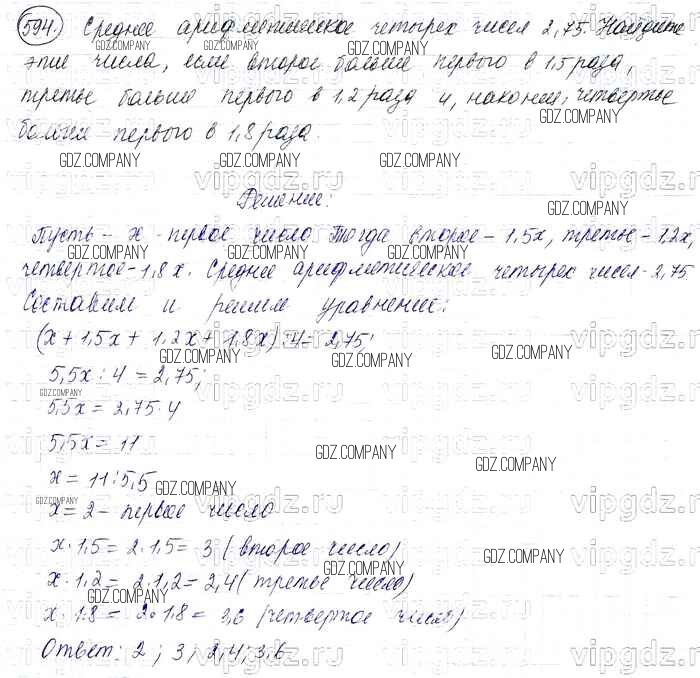 594. Среднее арифметическое четырех чисел 2,75. Найдите
эти числа, если второе больше первого в 1,5 раза,
третье больше первого в 1,2 раза и, наконец, четвертое
больше первого в 1,8 раза.
Решение:
Пусть - x - первое число. Тогда второе - 1,5x, третье - 1,2x,
четвертое - 1,8x. Среднее арифметическое четырех чисел - 2,75
Составим и решим уравнение:
(x + 1,5x + 1,2x + 1,8x) : 4 = 2,75;
5,5x : 4 = 2,75;
5,5x = 2,75 · 4
5,5x = 11
x = 11 : 5,5
x = 2 - первое число
x · 1,5 = 2 · 1,5 = 3 (второе число)
x · 1,2 = 2 · 1,2 = 2,4 (третье число)
x · 1,8 = 2 · 1,8 = 3,6 (четвертое число)
Ответ: 2 ; 3 ; 2,4 ; 3,6
GDZ.COMPANY
vipgdz.ru